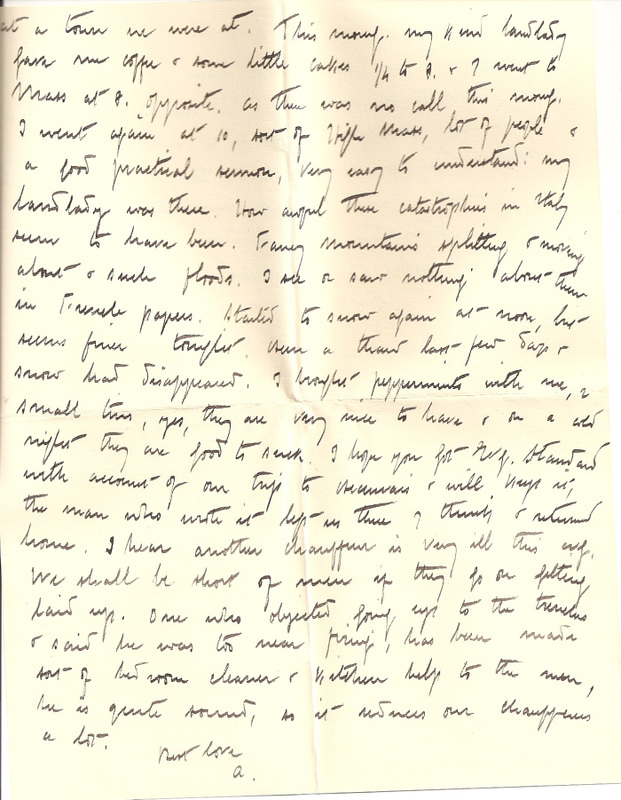 at a town we were at. This morng. my kind landlady
gave me coffee & some little cakes 1/4 to 8. & I went to
Mass at 8. opposite. as there was no call this morng.
I went again at 10, sort of High Mass, lot of people &
a good practical sermon, very easy to understand: my
landlady was there. How awful these catastrophies in Italy
seem to have been. Fancy mountains splitting & moving
about & such floods. I see or saw nothing about them
in French papers. Started to snow again at noon, but
seems finer tonight. Been a thaw last few days &
snow had disappeared. I brought peppermints with me, 2
small tins, yes, they are very nice to have & on a cold
night they are good to suck. I hope you got Evg. Standard
with account of our trip to & will keep it,
the man who wrote it left us there I think & returned
home. I hear another chauffeur is very ill this evg.
We shall be short of men if they go on getting
laid up. One who objected going up to the trenches
& said he was too near firing, has been made
sort of bedroom cleaner & kitchen help to the men,
he is quite sound, so it reduces our chauffeurs
a lot.
Best love
A.